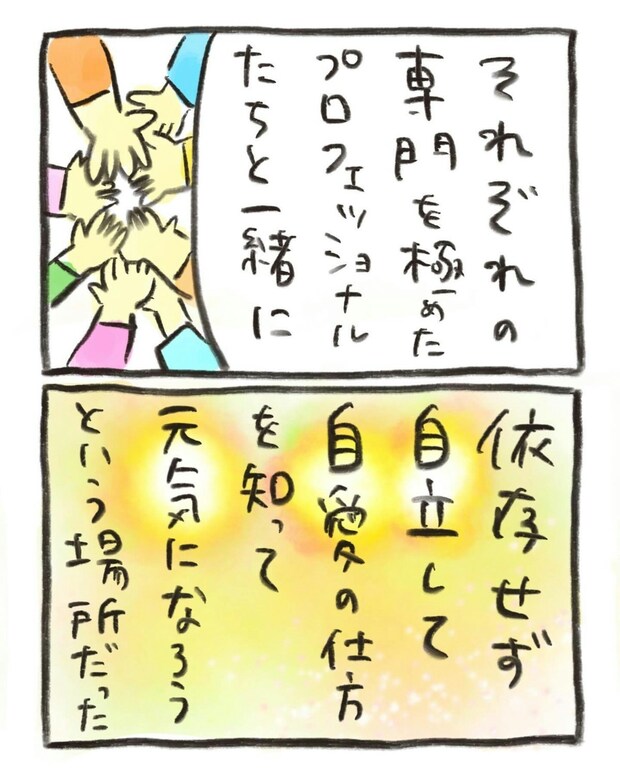 それぞれの
専門を極めた
プロフェッショナル
たちと一緒に
依存せず
自立して
自愛の仕方
を知って
元気になろう
という場所だった